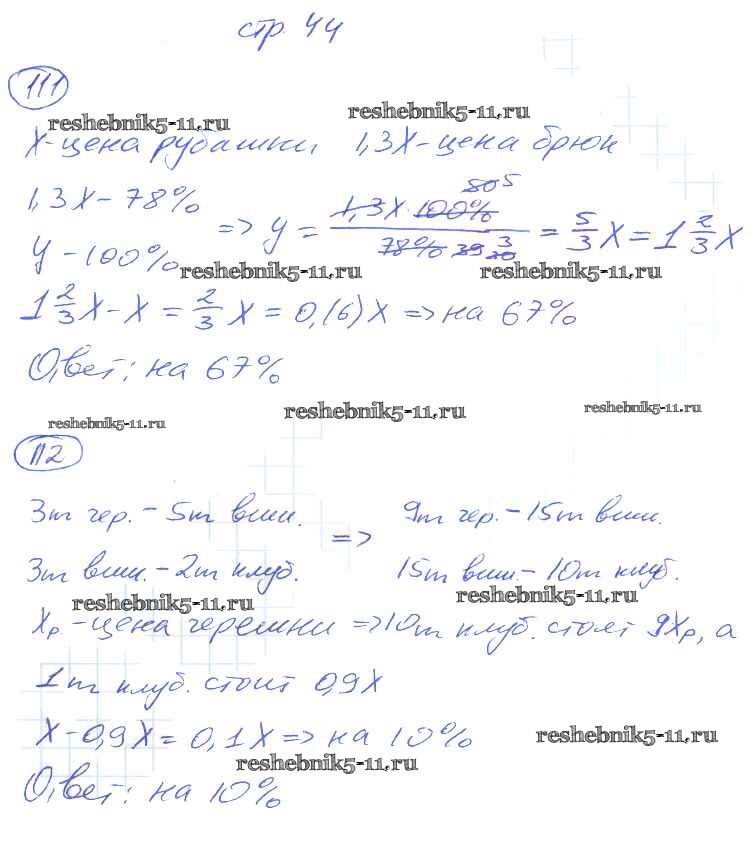 стр. 44
111
reshebnik5-11.ru reshebnik5-11.ru
X-цена рубашки, 1,3X-цена брюк
1,3X-78%
y-100%
=> y = 1,3X·100% 50 5 / 78% 39 30 3 = 5/3 X = 1 2/3 X
reshebnik5-11.ru reshebnik5-11.ru
1 2/3 X-X = 2/3 X = 0,(6)X => на 67%
Ответ: на 67%
reshebnik5-11.ru reshebnik5-11.ru reshebnik5-11.ru
112
3т чер.-5т виш. => 9т чер.-15т виш.
3т виш.-2т клуб. 15т виш.-10т клуб.
reshebnik5-11.ru reshebnik5-11.ru
Xр.-цена черешни => 10т клуб. стоят 9Xр, а
1т клуб. стоит 0,9X
X-0,9X = 0,1X => на 10%
reshebnik5-11.ru reshebnik5-11.ru
Ответ: на 10%